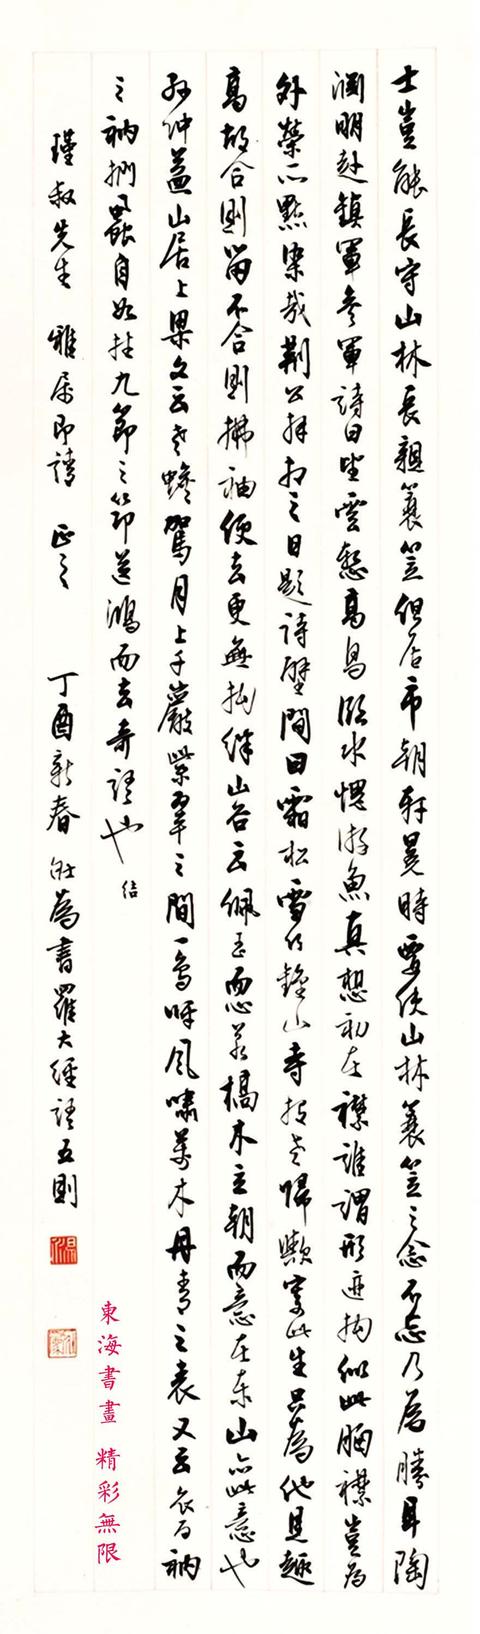 士豈能長守山林長親簑笠但居市朝軒冕時要使山林簑笠之念不忘乃為勝耳陶
淵明赴鎮軍參軍詩曰望雲慙高鳥臨水愧游魚真想初在襟誰謂形迹拘似此胸襟豈為
外榮所點染哉荊公拜相之日題詩壁間曰霜松雪竹鍾山寺投老歸歟寄此生只為他見趣
高故合則留不合則拂袖便去更無拘絆山谷云佩玉而心若槁木立朝而意在東山亦此意也
孫仲益山居上梁文云老蟾駕月上千巖紫翠之間一鳥呼風嘯萬木丹青之表又云衣百衲
之衲捫蝨自如拄九節之筇送鴻而去奇語也
瑾叔先生 雅屬即請 正之 丁酉新春 為書羅大經語五則
東海書畫 精彩無限